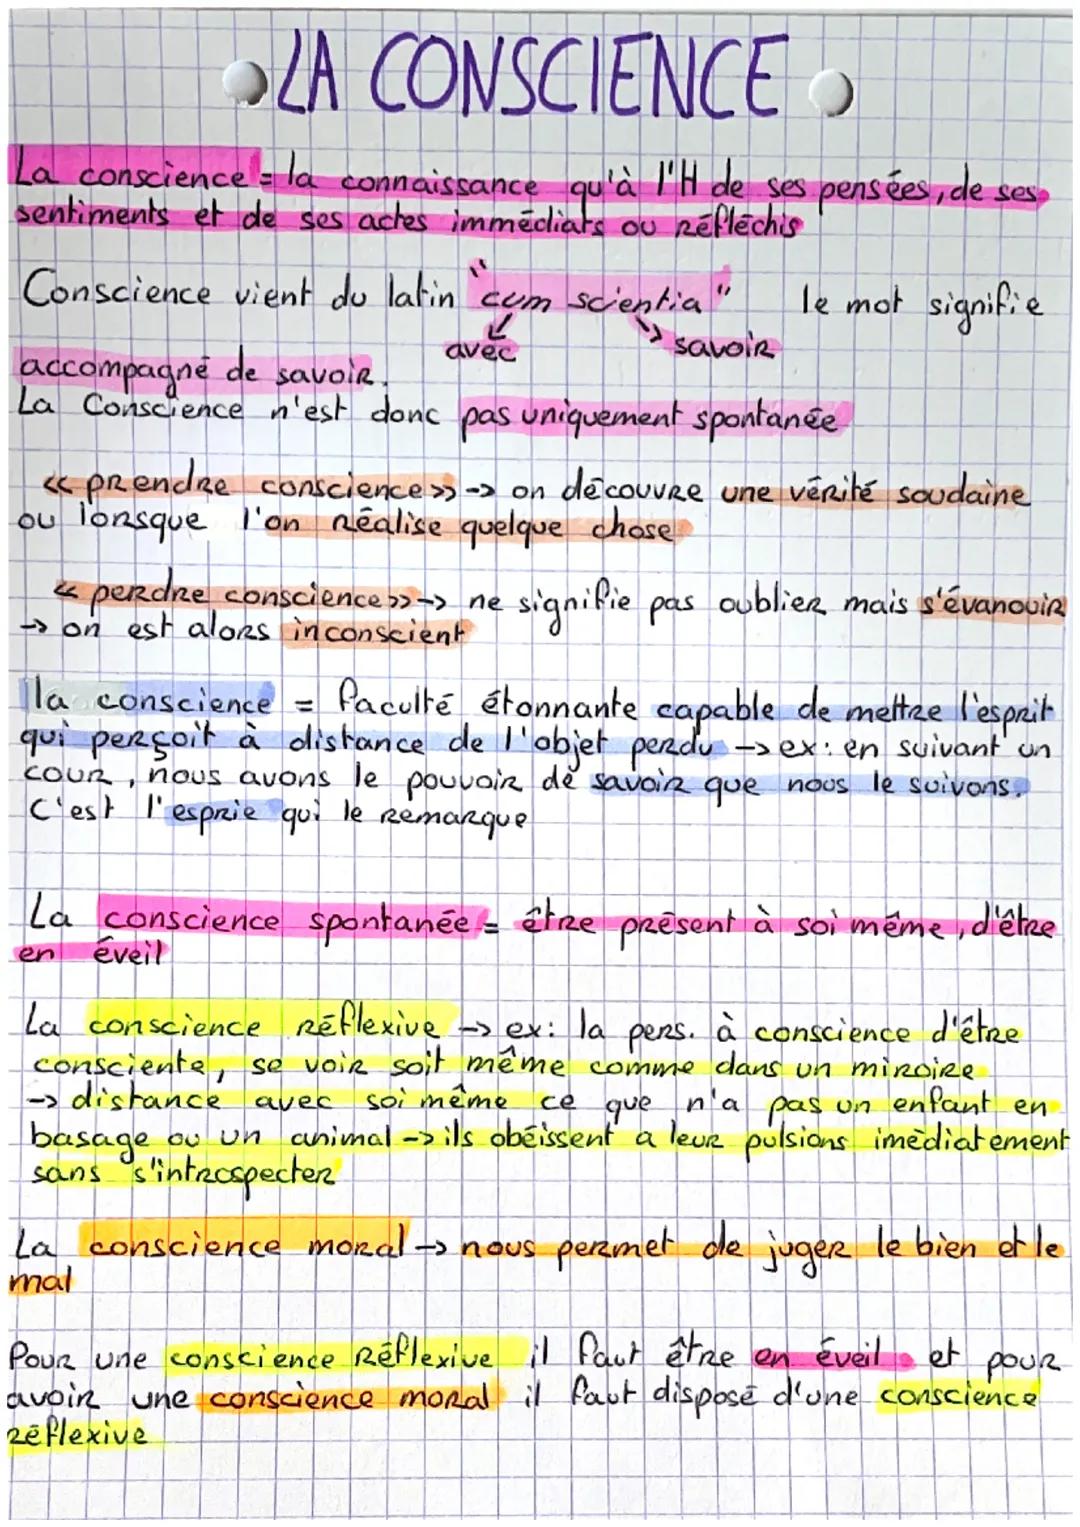 LA CONSCIENCE
La conscience = la connaissance qu'à l'H de ses pensées, de ses
sentiments et de ses actes immédiats ou réfléchis
Conscience vient du latin "cum scientia" le mot signifie
avec savoir
accompagné de savoir.
La Conscience n'est donc pas uniquement spontanée
<< prendre conscience >> -> on découvre une vérité soudaine
ou lorsque l'on réalise quelque chose
<< perdre conscience >> -> ne signifie pas oublier mais s'évanouir
-> on est alors inconscient
la conscience = faculté étonnante capable de mettre l'esprit
qui perçoit à distance de l'objet perdu -> ex: en suivant un
cour, nous avons le pouvoir de savoir que nous le suivons.
C'est l'esprie qui le remarque
La conscience spontanée = être présent à soi même, d'être
en éveil
La conscience réflexive -> ex: la pers. à conscience d'être
consciente, se voir soit même comme dans un miroire
-> distance avec soi même ce que n'a pas un enfant en
basage ou un animal -> ils obéissent a leur pulsions imédiatement
sans s'introspecter
La conscience moral -> nous permet de juger le bien et le
mal
Pour une conscience réflexive il faut être en éveil et pour
avoir une conscience moral il faut disposé d'une conscience
réflexive